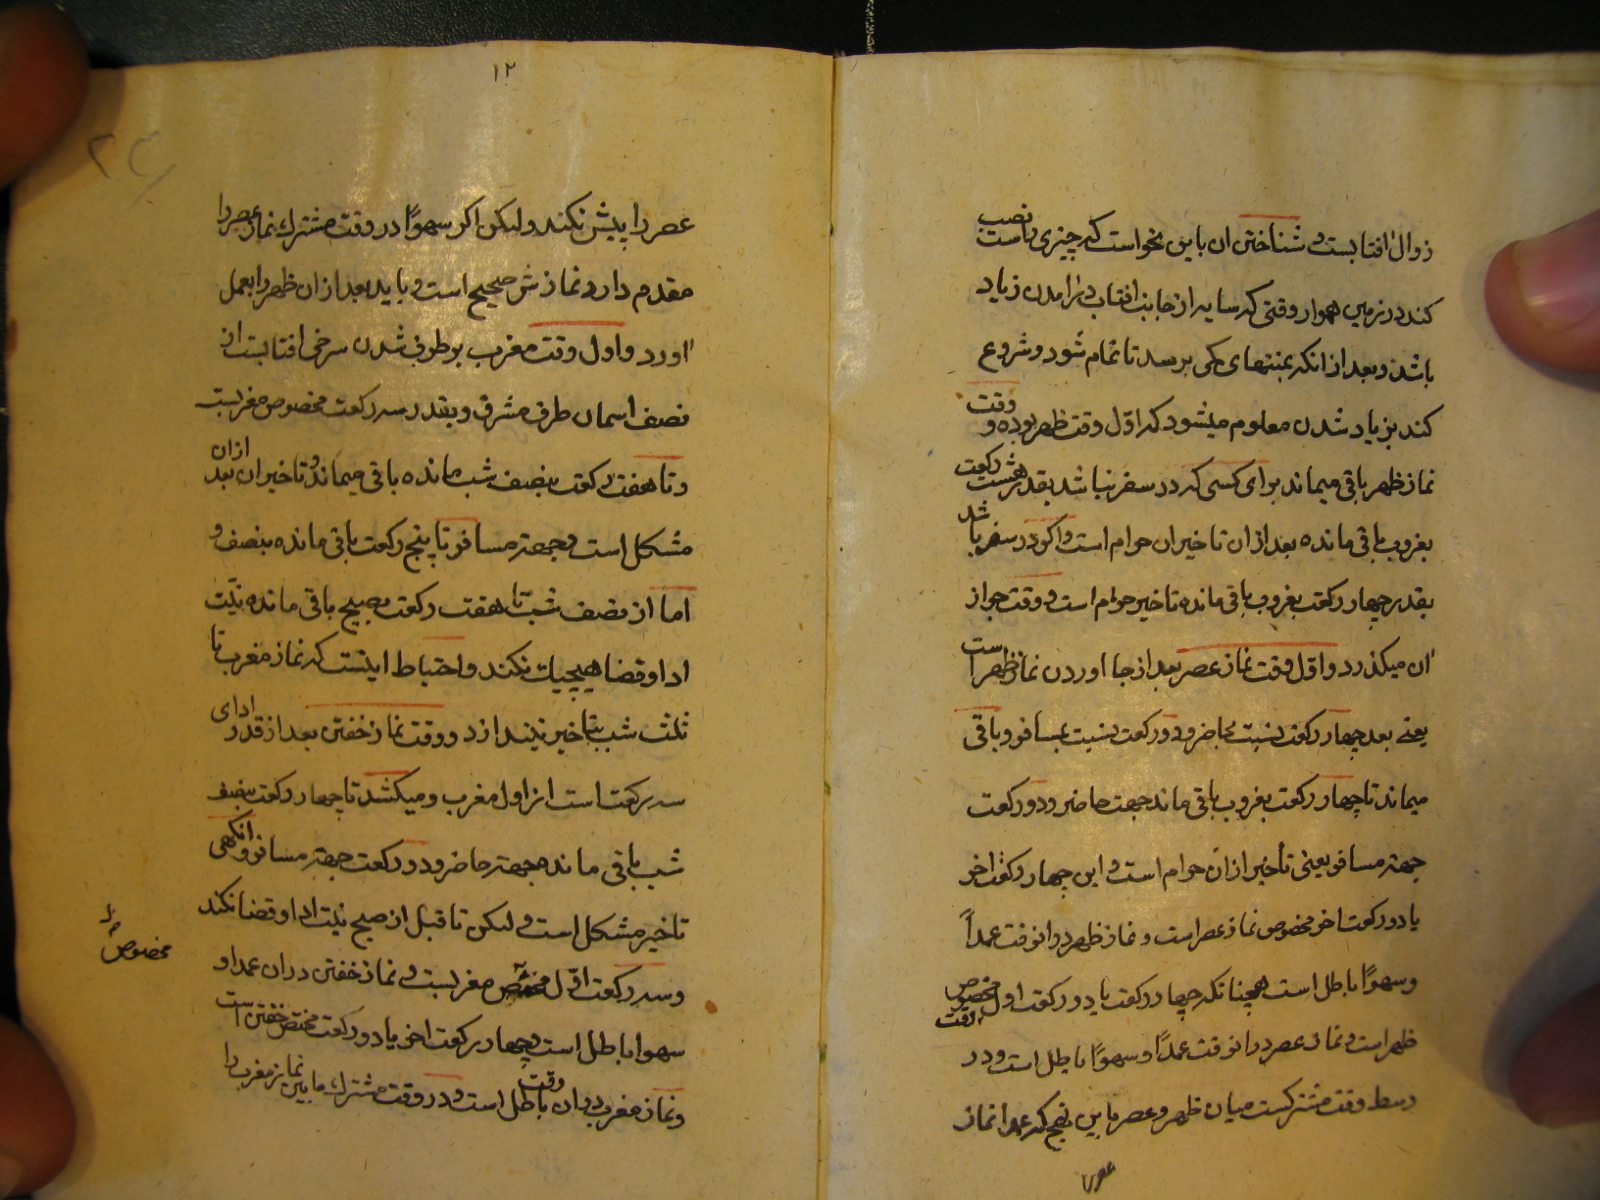 زوال افتابست و شناختن ان باین نحو است که چیزی راست نصب
کند در زمین هموار وقتی که سایه از جانب افتاب درامدن زیاد
باشد و بعد از انکه بمنتهای کمی برسد تا تمام شود و شروع
کند بزیاد شدن معلوم میشود که اوّل وقت ظهر بوده و وقت
نماز ظهر باقی میماند برای کسی که در سفر نباشد بقدر هشت رکعت
بغروب باقی مانده بعد ازان تاخیر ان حرام است و اکر در سفر باشد
بقدر چهار رکعت بغروب باقی مانده تاخیر حرام است و وقت جواز
ان میکذرد و اوّل وقت نماز عصر بعد از جا اوردن نماز ظهر است
یعنی بعد چهار رکعت نسبت بحاضر و دو رکعت نسبت بمسافر و باقی
میماند تا چهار رکعت بغروب باقی ماند جهت حاضر و دو رکعت
جهتر مسافر یعنی تأخیر ازان حرام است و این چهار رکعت اخر
یا دو رکعت اخر مخصوص نماز عصر است و نماز ظهر در انوقت عمداً
و سهوًا باطل است همچنانکه چهار رکعت یا دو رکعت اول وقت مخصوص
ظهر است و نماز عصر در انوقت عمدًا و سهوًا باطل است و در
وسط وقت مشترکست میان ظهر و عصر باین نهج که عمدا نماز
عصر
۱۲
عصر را پیش نکند و لیکن اکر سهوًا در وقت مشترك نماز عصر را
مقدم دارد نمازش صحیح است و باید بعد ازان ظهر را بعمل
اورد و اول وقت مغرب برطرف شدن سرخی افتابست از
نصف اسمان طرف مشرق و بقدر سه رکعت مخصوص مغربست
و تا هفت رکعت بنصف شب مانده باقی میماند و تاخیر ان بعد ازان
مشکل است و جهتر مسافر تا پنج رکعت باقی مانده بنصف و
اما از نصف شب تا هفت رکعت بصبح باقی مانده نیّت
ادا و قضا هیچیك نکند و احتیاط اینست که نماز مغرب تا
ثلث شب بتاخیر نیندازد و وقت نماز خفتن بعد از قدر ادای
سه رکعت است از اول مغرب و میکشد تا چهار رکعت بنصف
شب باقی مانده جهتر حاضر و دو رکعت جهتر مسافر و انکهی
تاخیر مشکل است و لیکن تا قبل از صبح نیّت ادا و قضا نکند
و سه رکعت اوّل مغربست و نماز خفتن دران عمدا و
مخصوص
سهوا باطل است و چهار رکعت اخر یا دو رکعت مختص خفتن است
و نماز مغرب دران وقت باطل است و در وقت مشترك ما بین نماز مغرب را